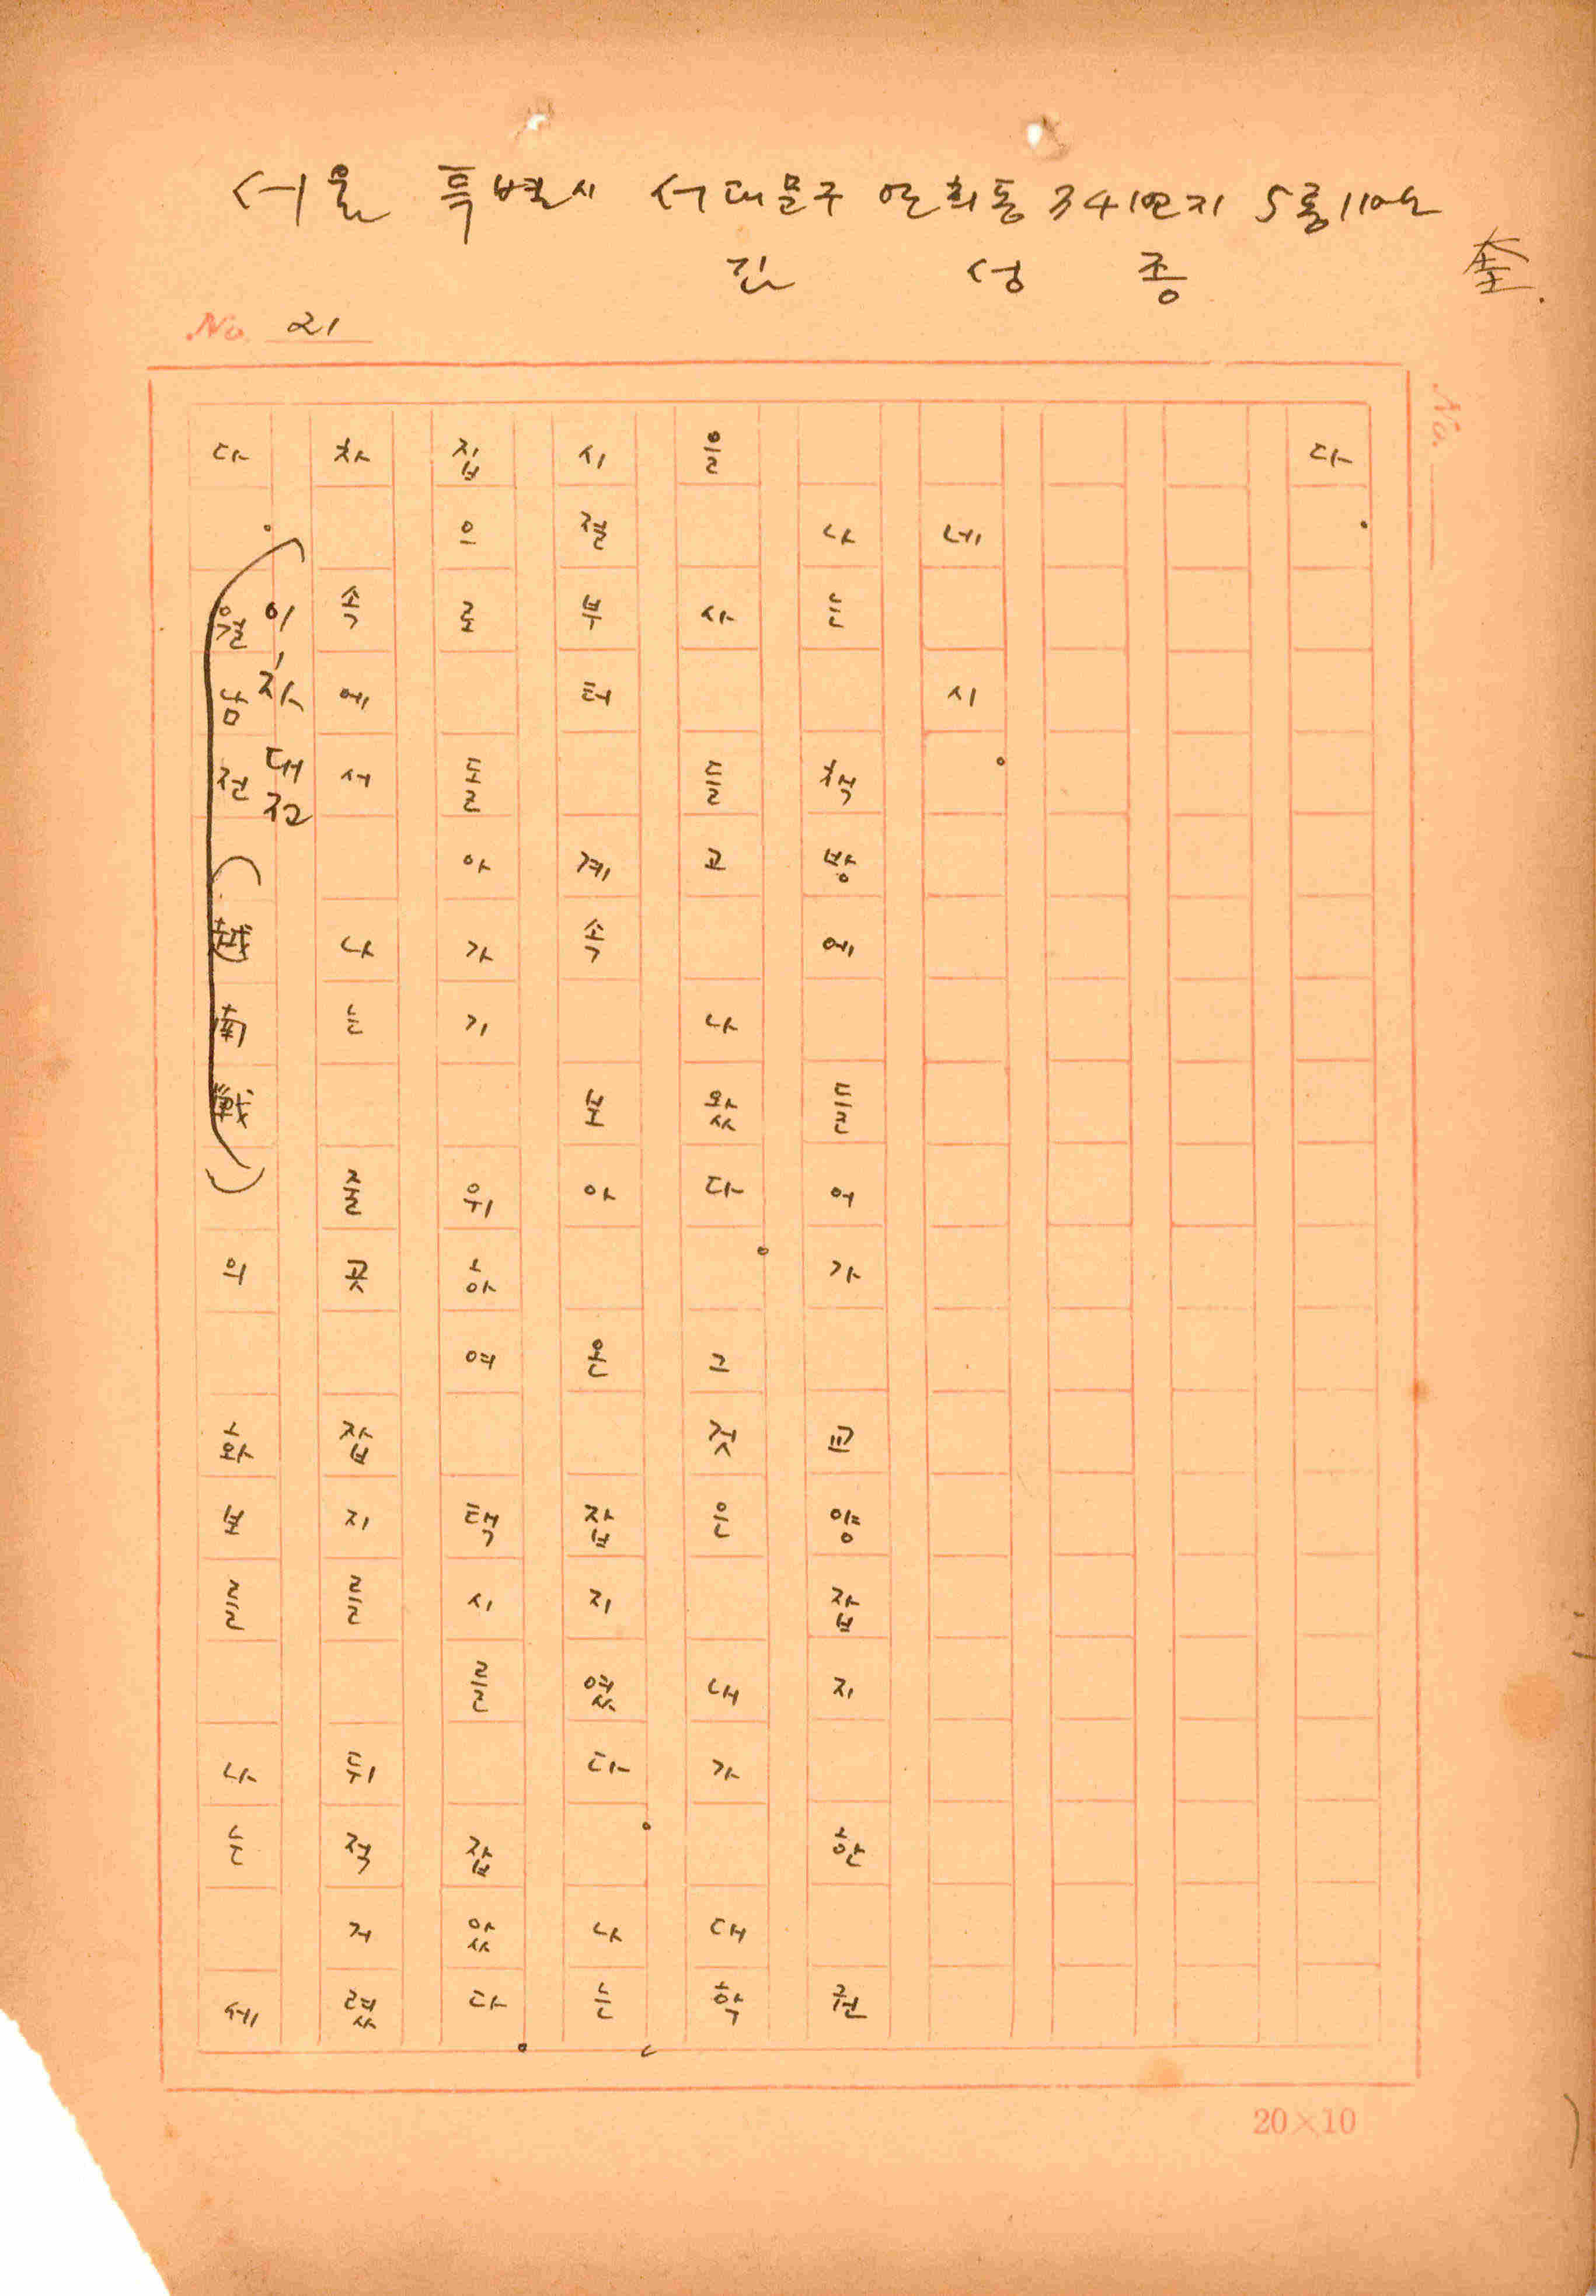 서울 특별시 서대문구 연희동 341번지 5통
김 성 종 奎.
No. 21
No.
다.
네 시.
나는 책방에 들어가 교양잡지 한 권
을 사 들고 나왔다. 그것은 내가 대학
시절부터 계속 보아 온 잡지였다. 나는
집으로 돌아가기 위하여 택시를 잡았다.
차 속에서 나는 줄곳 잡지를 뒤적거렸
이차대전
다. 월남전(越南戰)의 화보를 나는 세
20×10